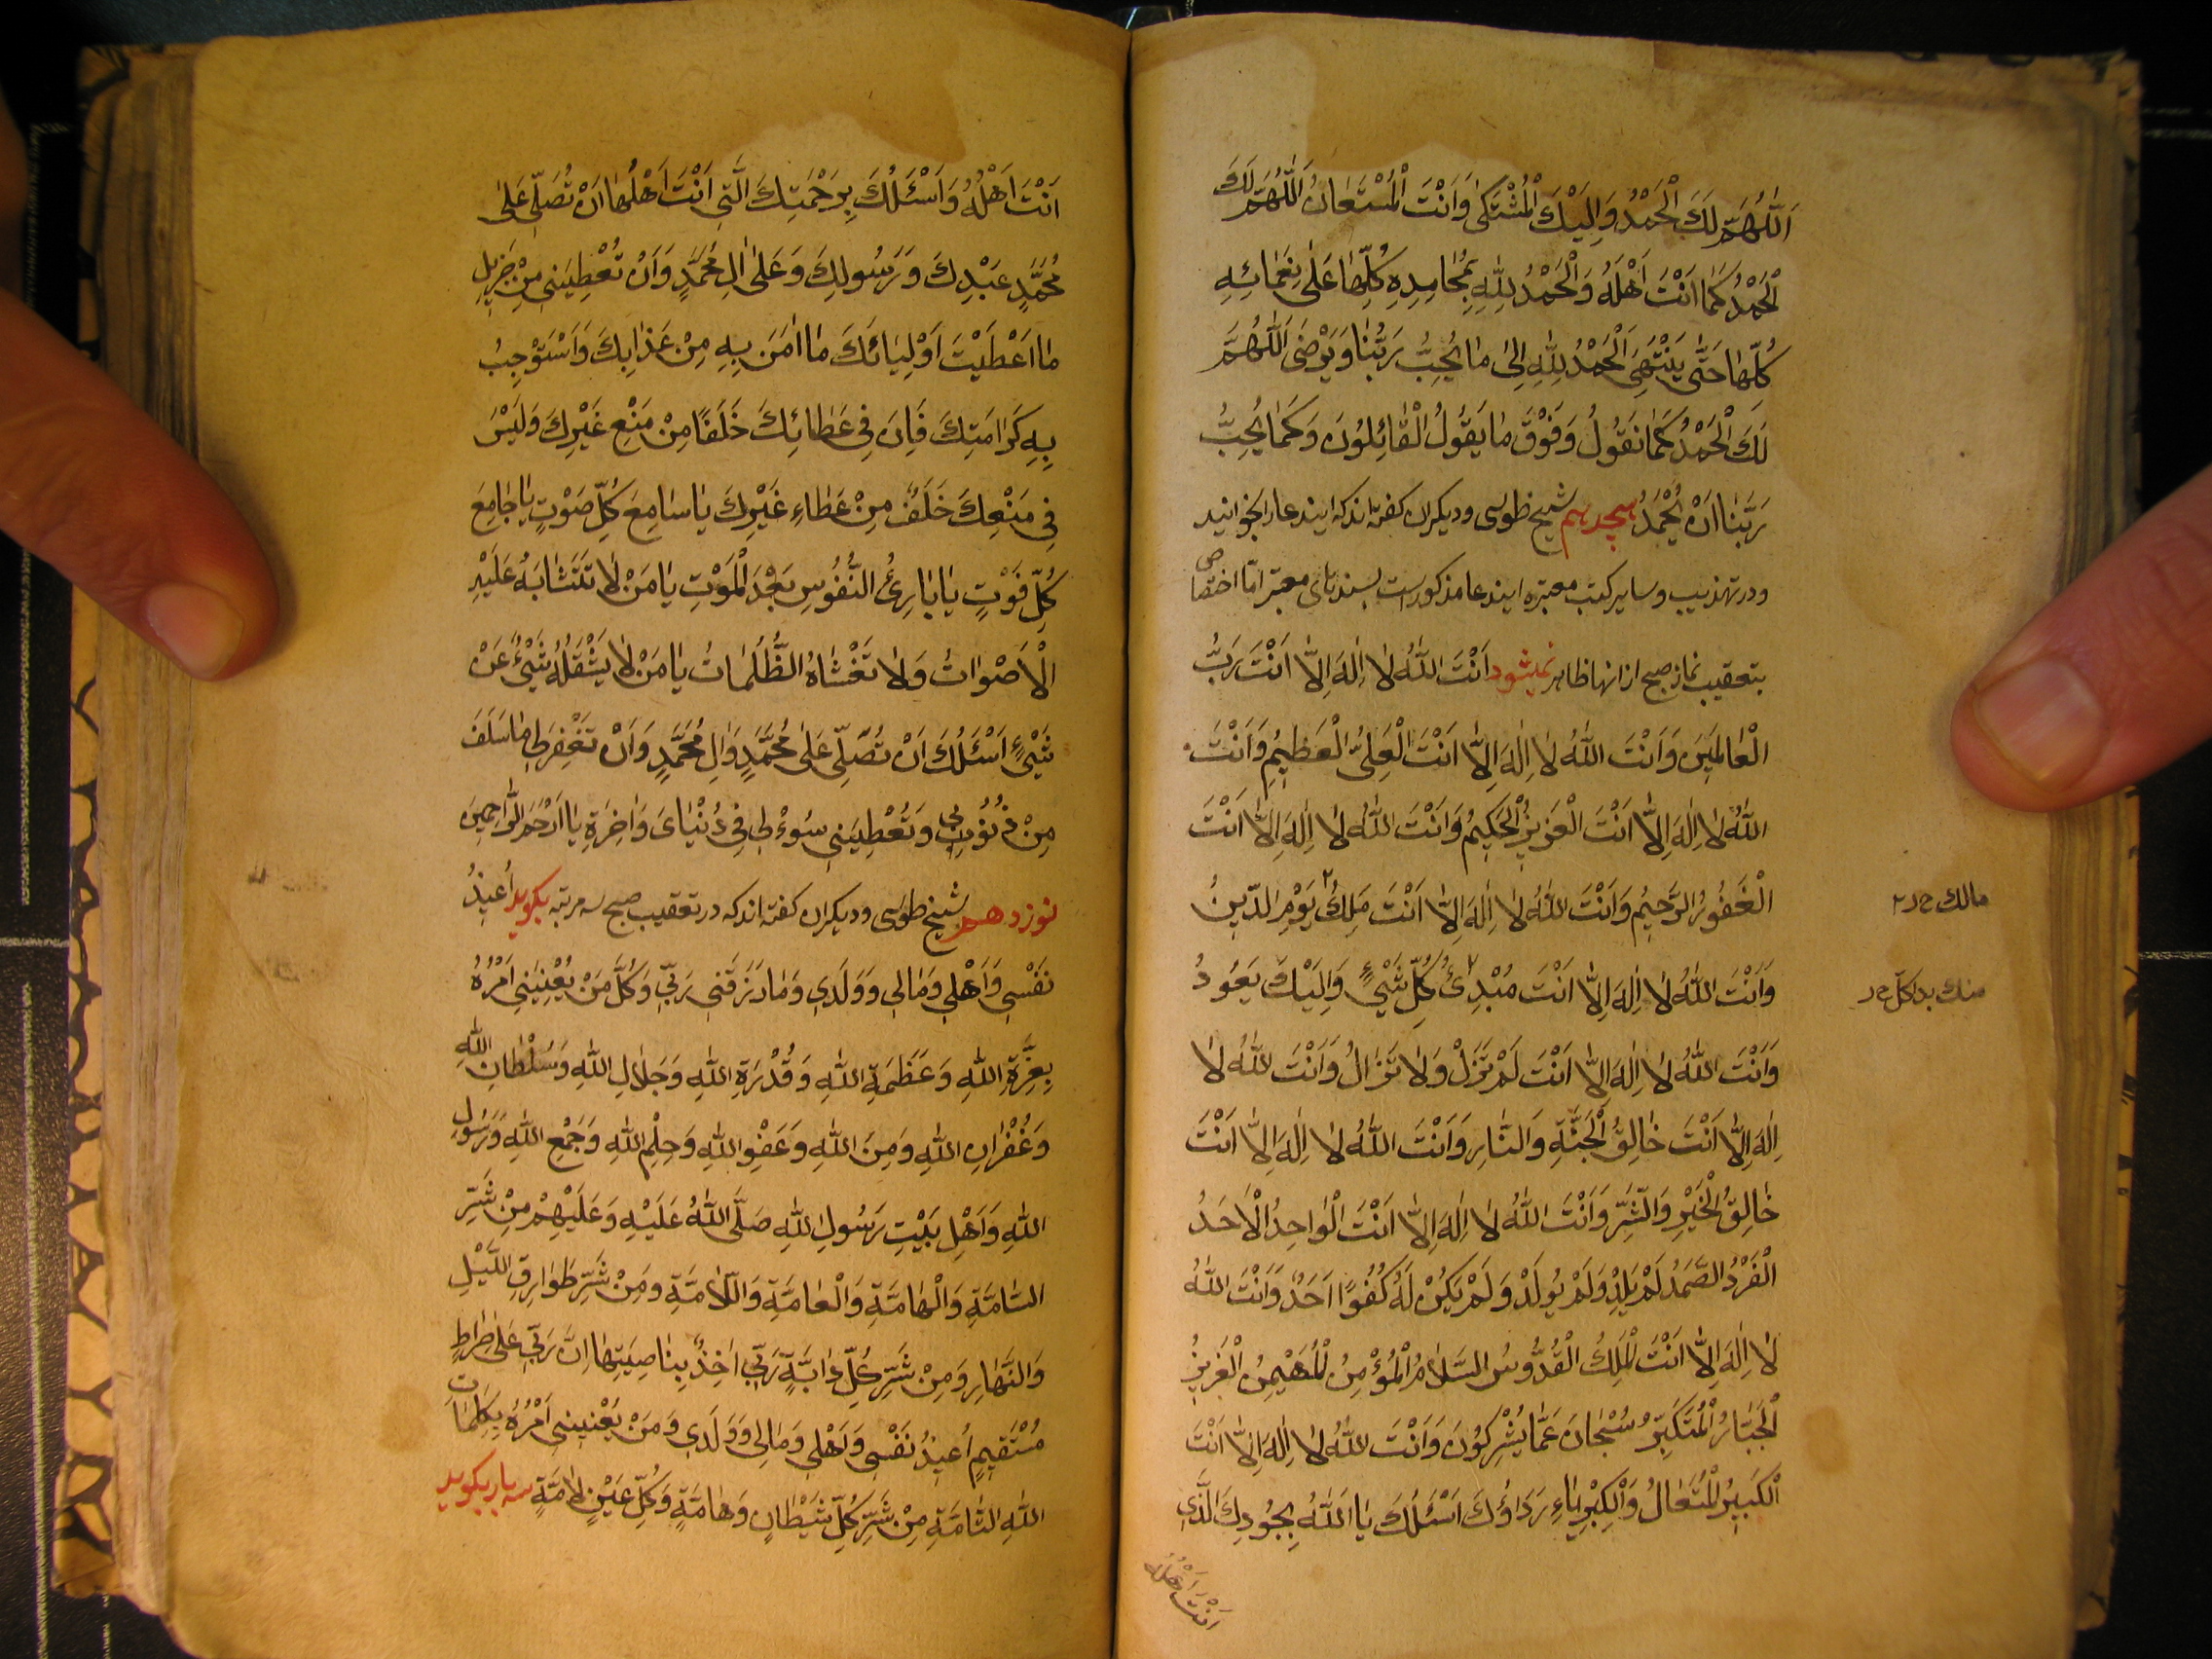 اَللّٰهُمَّ لَكَ الْحَمْدُ وَاِلَيْكَ الْمُشْتَكٰى وَاَنْتَ الْمُسْتَعٰانُ اَللّٰهُمَّ لَكَ
الْحَمْدُ كَمٰا اَنْتَ اَهْلُهُ وَالْحَمْدُ لِلّٰهِ بِمَحٰامِدِهِ كُلِّهٰا عَلٰى نَعْمٰائِهِ
كُلِّهٰا حَتّٰى يَنْتَهِيَ الْحَمْدُ لِلّٰهِ اِلٰى مٰا يُحِبُّ رَبُّنٰا وَيَرْضٰى اَللّٰهُمَّ
لَكَ الْحَمْدُ كَمٰا نَقُولُ وَفَوْقَ مٰا يَقُولُ الْقٰائِلُونَ وَكَمٰا يُحِبُّ
رَبُّنٰا اَنْ يُحْمَدَ هیجدهم شیخ طوسی ودیکران کفته اند که ایندعا را بخوانید
ودر تهذیب وسایر کتب معتبره ایندعا مذکور است بسندهای معتبر امّا اختصاص
بتعقیب نماز صبح از انها ظاهر نمیشود اَنْتَ اللّٰهُ لٰا اِلٰهَ اِلّٰا اَنْتَ رَبُّ
الْعٰالَمِينَ وَاَنْتَ اللّٰهُ لٰا اِلٰهَ اِلّٰا اَنْتَ الْعَلِيُّ الْعَظِيمُ وَاَنْتَ
اللّٰهُ لٰا اِلٰهَ اِلّٰا اَنْتَ الْعَزِيزُ الْحَكِيمُ وَاَنْتَ اللّٰهُ لٰا اِلٰهَ اِلّٰا اَنْتَ
الْغَفُورُ الرَّحِيمُ وَاَنْتَ اللّٰهُ لٰا اِلٰهَ اِلّٰا اَنْتَ مَلِكُ يَوْمِ الدِّينِ
مالك
وَاَنْتَ اللّٰهُ لٰا اِلٰهَ اِلّٰا اَنْتَ مُبْدِئُ كُلِّ شَيْءٍ وَاِلَيْكَ يَعُودُ
منك بدا كلّ
وَاَنْتَ اللّٰهُ لٰا اِلٰهَ اِلّٰا اَنْتَ لَمْ تَزَلْ وَلٰا تَزٰالُ وَاَنْتَ اللّٰهُ لٰا
اِلٰهَ اِلّٰا اَنْتَ خٰالِقُ الْجَنَّةِ وَالنّٰارِ وَاَنْتَ اللّٰهُ لٰا اِلٰهَ اِلّٰا اَنْتَ
خٰالِقُ الْخَيْرِ وَالشَّرِّ وَاَنْتَ اللّٰهُ لٰا اِلٰهَ اِلّٰا اَنْتَ الْوٰاحِدُ الْاَحَدُ
الْفَرْدُ الصَّمَدُ لَمْ يَلِدْ وَلَمْ يُولَدْ وَلَمْ يَكُنْ لَهُ كُفُوًا اَحَدٌ وَاَنْتَ اللّٰهُ
لٰا اِلٰهَ اِلّٰا اَنْتَ الْمَلِكُ الْقُدُّوسُ السَّلٰامُ الْمُؤْمِنُ الْمُهَيْمِنُ الْعَزِيزُ
الْجَبّٰارُ الْمُتَكَبِّرُ سُبْحٰانَ عَمّٰا يُشْرِكُونَ وَاَنْتَ اللّٰهُ لٰا اِلٰهَ اِلّٰا اَنْتَ
الْكَبِيرُ الْمُتَعٰالُ وَالْكِبْرِيٰاءِ رَدٰاؤُكَ اَسْئَلُكَ يٰا اَللّٰهُ بِجُودِكَ الَّذِي
اَنْتَ اَهْلُهُ
اَنْتَ اَهْلُهُ وَاَسْئَلُكَ بِرَحْمَتِكَ الَّتِي اَنْتَ اَهْلُهٰا اَنْ تُصَلِّيَ عَلٰى
مُحَمَّدٍ عَبْدِكَ وَرَسُولِكَ وَعَلٰى اٰلِ مُحَمَّدٍ وَاَنْ تُعْطِيَنِي مِنْ جَزِيلِ
مٰا اَعْطَيْتَ اَوْلِيٰائَكَ مٰا اٰمَنُ بِهِ مِنْ عَذٰابِكَ وَاَسْتَوْجِبُ
بِهِ كَرٰامَتِكَ فَاِنَ فِي عَطٰائِكَ خَلَفًا مِنْ مَنْعِ غَيْرِكَ وَلَيْسَ
فِي مَنْعِكَ خَلَفٌ مِنْ عَطٰاءِ غَيْرِكَ يٰا سٰامِعَ كُلِّ صَوْتٍ يٰا جٰامِعَ
كُلِّ فَوْتٍ يٰا بٰارِئَ النُّفُوسِ بَعْدَ الْمَوْتِ يٰا مَنْ لٰا تَتَشٰابَهُ عَلَيْهِ
الْاَصْوٰاتُ وَلٰا تَغْشٰاهُ الظُّلُمٰاتُ يٰا مَنْ لٰا يَشْغَلُهُ شَيْءٌ عَنْ
شَيْءٍ اَسْئَلُكَ اَنْ تُصَلِّيَ عَلٰى مُحَمَّدٍ وَاٰلِ مُحَمَّدٍ وَاَنْ تَغْفِرَ لِي مٰا سَلَفَ
مِنْ ذُنُوبِي وَتُعْطِيَنِي سُؤْلِي فِي دُنْيٰايَ وَاٰخِرَةِ يٰا اَرْحَمَ الرّٰاحِمِينَ
نوزدهم شیخ طوسی ودیکران کفته اند که در تعقیب صبح سه مرتبه بکوید اُعِيذُ
نَفْسِي وَاَهْلِي وَمٰالِي وَوَلَدِي وَمٰا رَزَقَنِي رَبِّي وَكُلَّ مَنْ يُعْنِينِي اَمْرُهُ
بِعِزَّةِ اللّٰهِ وَعَظَمَةِ اللّٰهِ وَقُدْرَةِ اللّٰهِ وَجَلٰالِ اللّٰهِ وَسُلْطٰانِ اللّٰهِ
وَغُفْرٰانِ اللّٰهِ وَمَنِّ اللّٰهِ وَعَفْوِ اللّٰهِ وَحِلْمِ اللّٰهِ وَجَمْعِ اللّٰهِ وَرَسُولِ
اللّٰهِ وَاَهْلِ بَيْتِ رَسُولِ اللّٰهِ صَلَّى اللّٰهُ عَلَيْهِ وَعَلَيْهِمْ مِنْ شَرِّ
السّٰامَّةِ وَالْهٰامَّةِ وَالْعٰامَّةِ وَاللّٰامَّةِ وَمِنْ شَرِّ طَوٰارِقِ اللَّيْلِ
وَالنَّهٰارِ وَمِنْ شَرِّ كُلِّ دٰابَّةٍ رَبِّي اٰخِذٌ بِنٰاصِيَتِهٰا اِنَّ رَبِّي عَلٰى صِرٰاطٍ
مُسْتَقِيمٍ اُعِيذُ نَفْسِي وَاَهْلِي وَمٰالِي وَوَلَدِي وَمَنْ يَعْنِينِي اَمْرُهُ بِكَلِمٰاتِ
اللّٰهِ التّٰامَّةِ مِنْ شَرِّ كُلِّ شَيْطٰانٍ وَهٰامَّةٍ وَكُلِّ عَيْنٍ لٰامَّةٍ سه بار بکوید